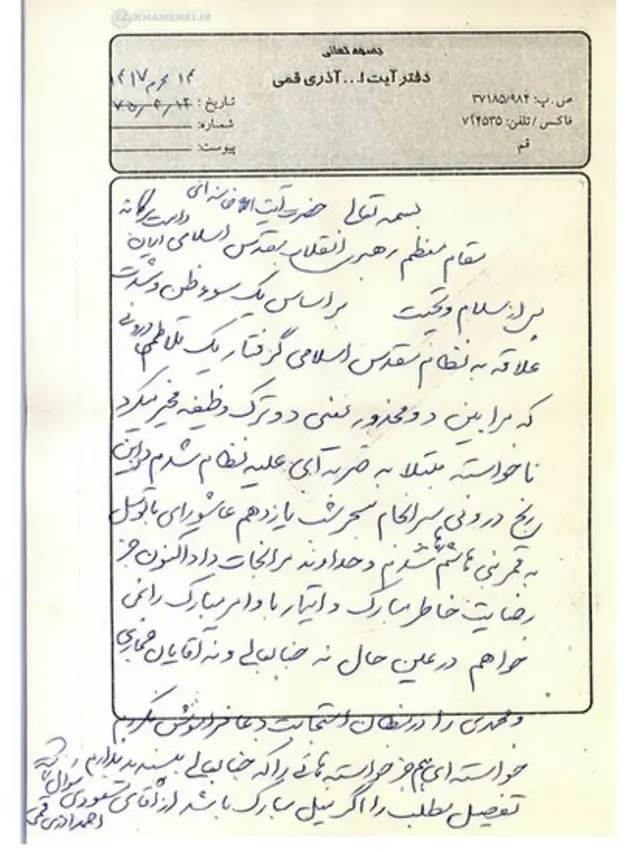 KHAMENEI.IR
بسمه تعالی
دفتر آیت ا... آذری قمی
۱۴ محرم ۱۴۱۷
ص. پ: ۳۷۱۸۵/۹۸۴
تاریخ:
فاکس / تلفن: ۷۲۴۵۳۵
شماره:
قم
پیوست:
بسمه تعالی حضرت آیت الله خامنه ای
مقام معظم رهبری انقلاب مقدس اسلامی ایران دامت برکاته
پس از سلام و تحیت بر اساس یک سوء ظن و شدت
علاقه به نظام مقدس اسلامی گرفتار یک تلاطم درونی
که مرا بین دو محذور یعنی دو ترک وظیفه مخیر میکرد
ناخواسته مبتلا به ضربه ای علیه نظام شدم در این
رنج درونی سرانجام سحر شب یازدهم عاشورای با توسل
به قمر بنی هاشم شدم و خداوند مرا نجات داد اکنون جز
رضایت خاطر مبارک و اوامر مبارک را نمی
خواهم در عین حال نه جنابعالی و نه آقایان
و محمدی را در مظان استجابت دعا فراموش نکردم
خواسته ای هم جز خواسته هائی را که جنابعالی بپسندید ندارم
تفصیل مطلب را اگر میل مبارک باشد از آقای مسعودی سوال
احمد آذری قمی